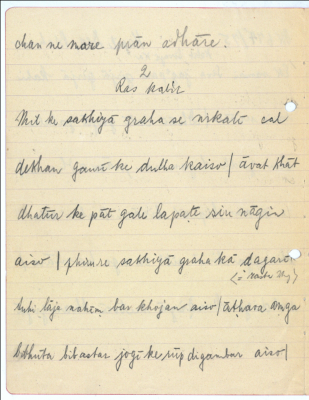 chan ne more prān adhāre.
2
Ras Kabit
Mil ke sakhiyā graha se nikali cal
dekhan gaurī ke dulha kaiso / āvat khāt
dhatur ke pāt gale lapaṭe siu nāgin
aiso / phirure sakhiyā graha kā dagare
tuhi lāja nahem bar khojan aiso / āṭhara anga
bibhuta bibastar jogī ke rūp digambar aiso /